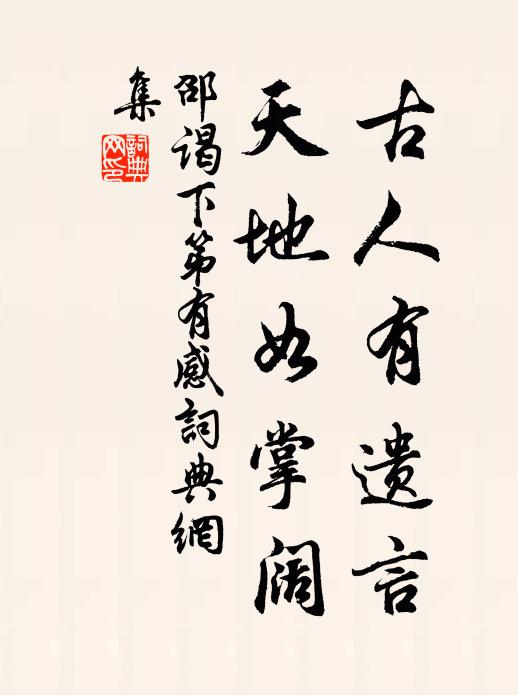 古人有遗言
天地如掌阔
邵谒下第有感詞典網
集
詞典
网印